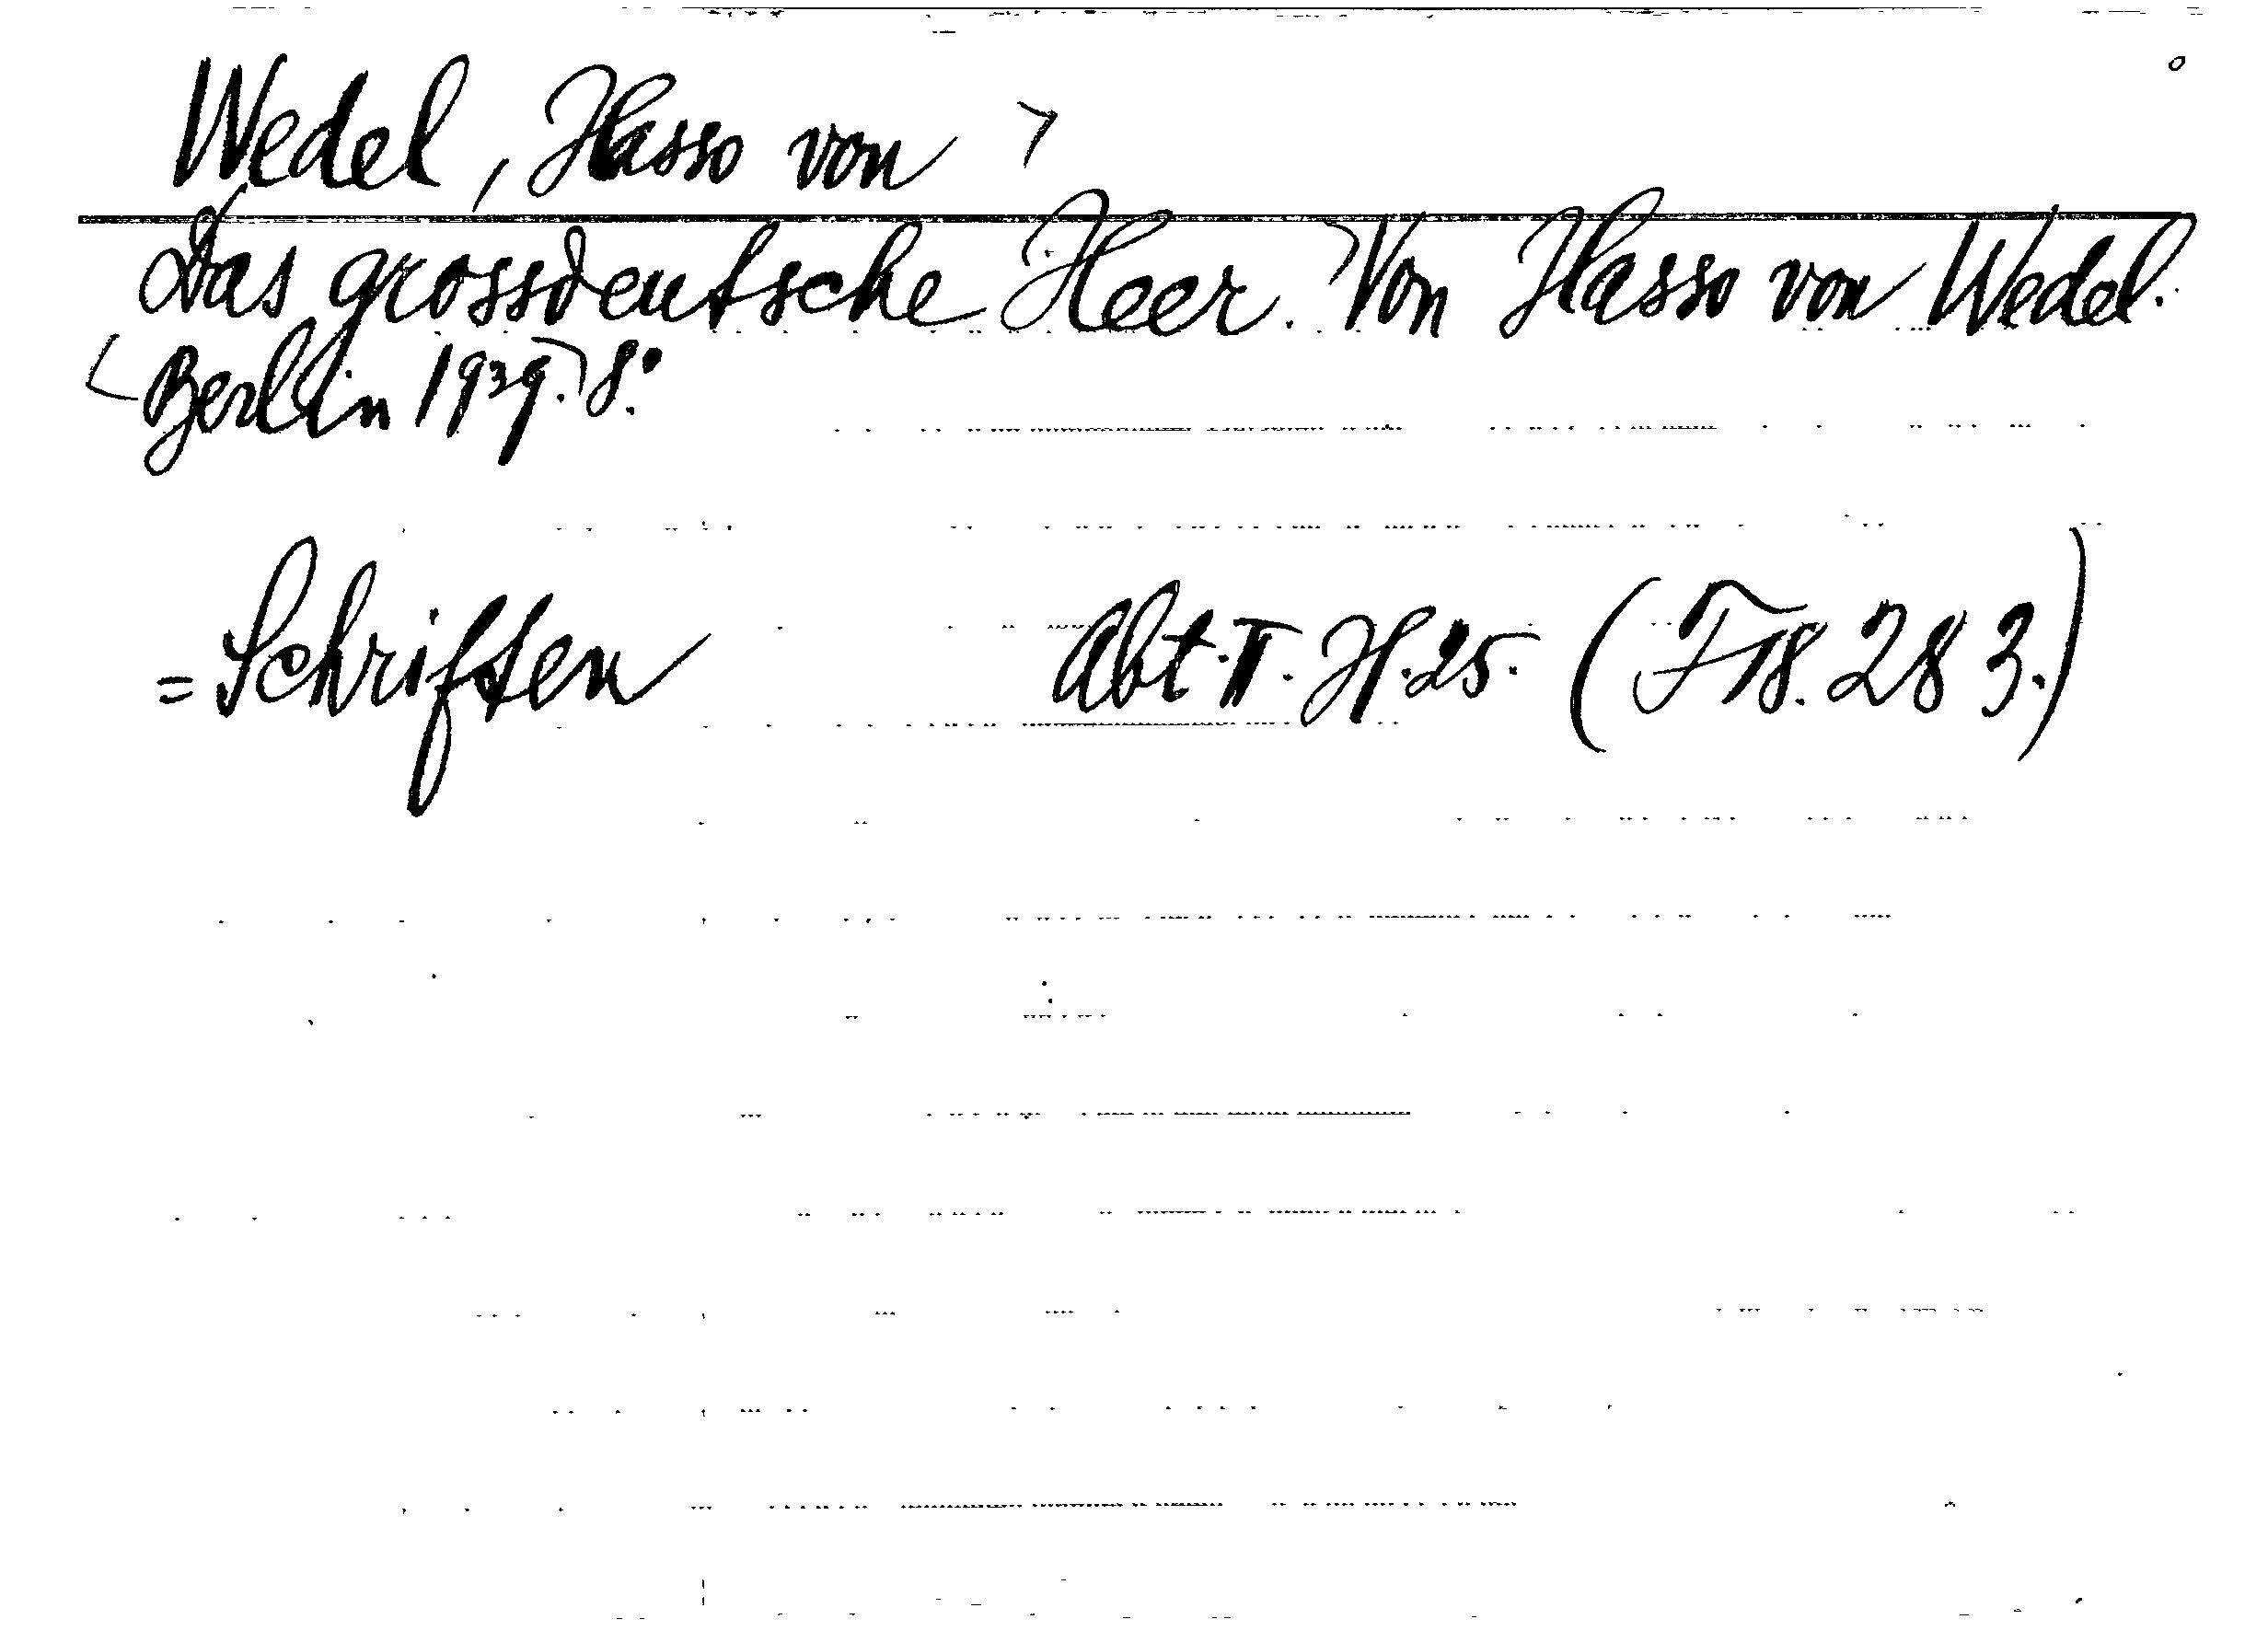 Wedel, Hasso von
Das grossdeutsche Heer. Von Hasso von Wedel.
Berlin 1939. 8°.
=Schriften Abt. II. H. 25. (F 18. 283.)